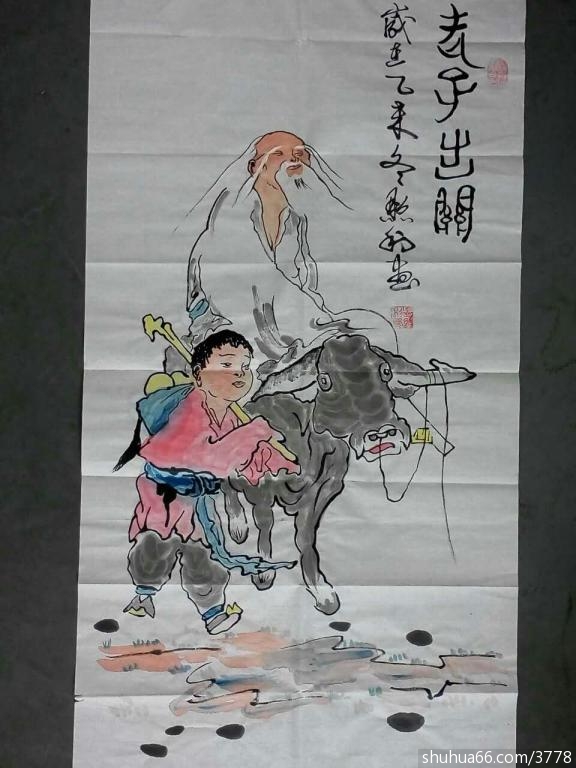 老子出關
歲在乙未冬畫
shuhua66.com/3778